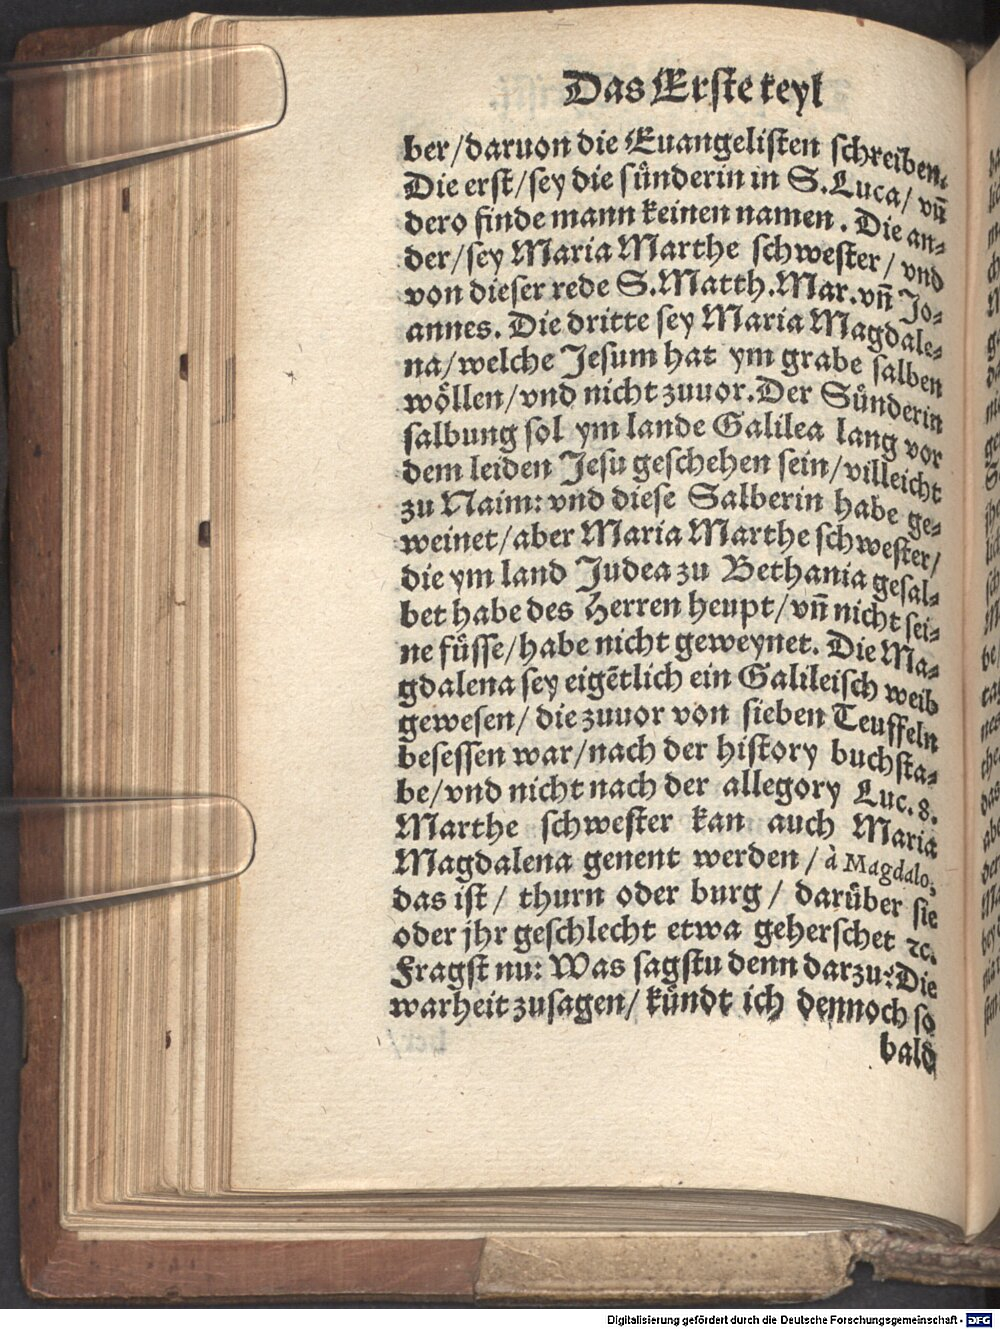 Das Erste teyl
ber/daruon die Euangelisten schreiben.
Die erst/sey die sünderin in S.Luca/ vñ
dero finde mann keinen namen. Die an-
der/sey Maria Marthe schwester/ vnd
von dieser rede S.Matth.Mar.vñ Jo-
annes. Die dritte sey Maria Magdale-
na/welche Jesum hat ym grabe salben
wöllen/vnd nicht zuuor.Der Sünderin
salbung sol ym lande Galilea lang vor
dem leiden Jesu geschehen sein/villeicht
zu Naim: vnd diese Salberin habe ge-
weinet/aber Maria Marthe schwester/
die ym land Judea zu Bethania gesal-
bet habe des Herren heupt/vñ nicht sei-
ne füsse/habe nicht geweynet. Die Ma-
gdalena sey eigẽtlich ein Galileisch weib
gewesen/ die zuuor von sieben Teuffeln
besessen war/nach der history buchsta-
be/vnd nicht nach der allegory Luc.8.
Marthe schwester kan auch Maria
Magdalena genent werden/ à Magdalo,
das ist/ thurn oder burg/ darüber sie
oder jhr geschlecht etwa geherschet ꝛc.
Fragst nu: Was sagstu denn darzu? Die
warheit zusagen/ kündt ich dennoch so
bald
Digitalisierung gefördert durch die Deutsche Forschungsgemeinschaft - DFG